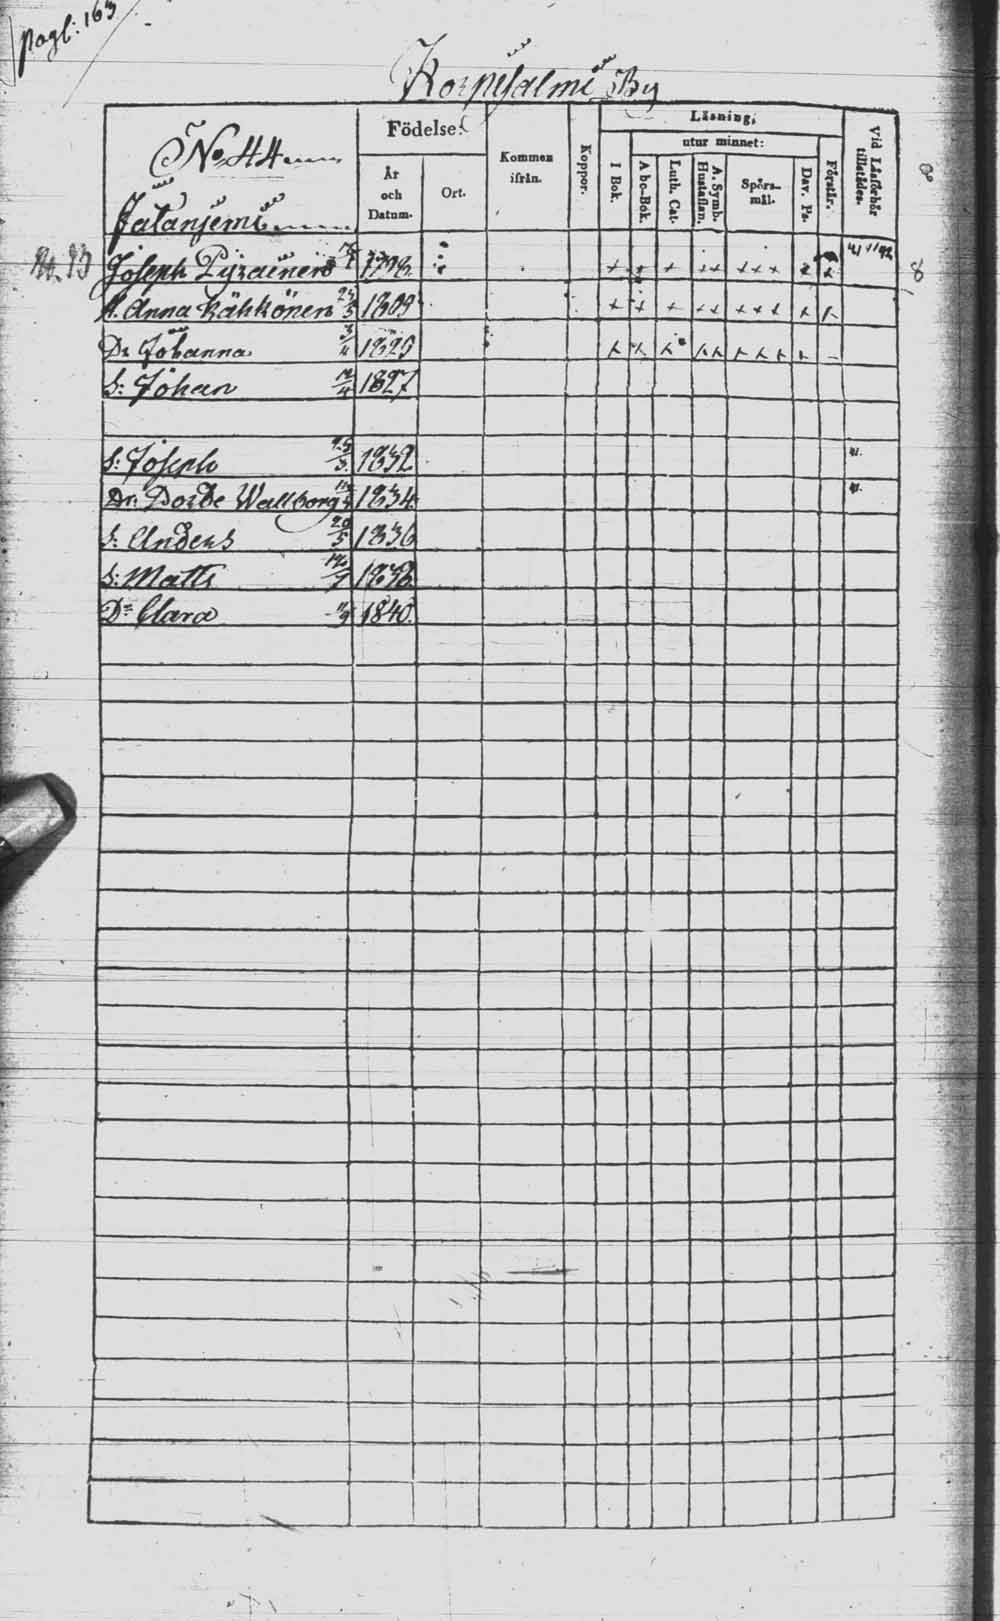 pag: 163
Korpisalmi By
No 44
Jatanjemi
Födelse:
År och Datum.
Ort.
Kommen ifrån.
Koppor.
Läsning,
I Bok.
utur minnet:
A bc-Bok.
Luth. Cat.
A. Symb. Hustaflan.
Spörs-mål.
Dav. Ps.
Förstår.
Vid Läsförhör tillstädes.
Joseph 1798. + + + ++ +++ + + 41 42
H. Anna Kähkönen 23/5 1809 + + + ++ +++ + +
Dr Johanna 3/4 1825 + + + ++ +++ + -
S: Johan 12/4 1827
S: Joseph 25/3 1832 41.
Dr. Worde Wallborg 1834 41.
S: Anders 20/5 1836
S: Matts 1838
Dr Clara 11/9 1840.